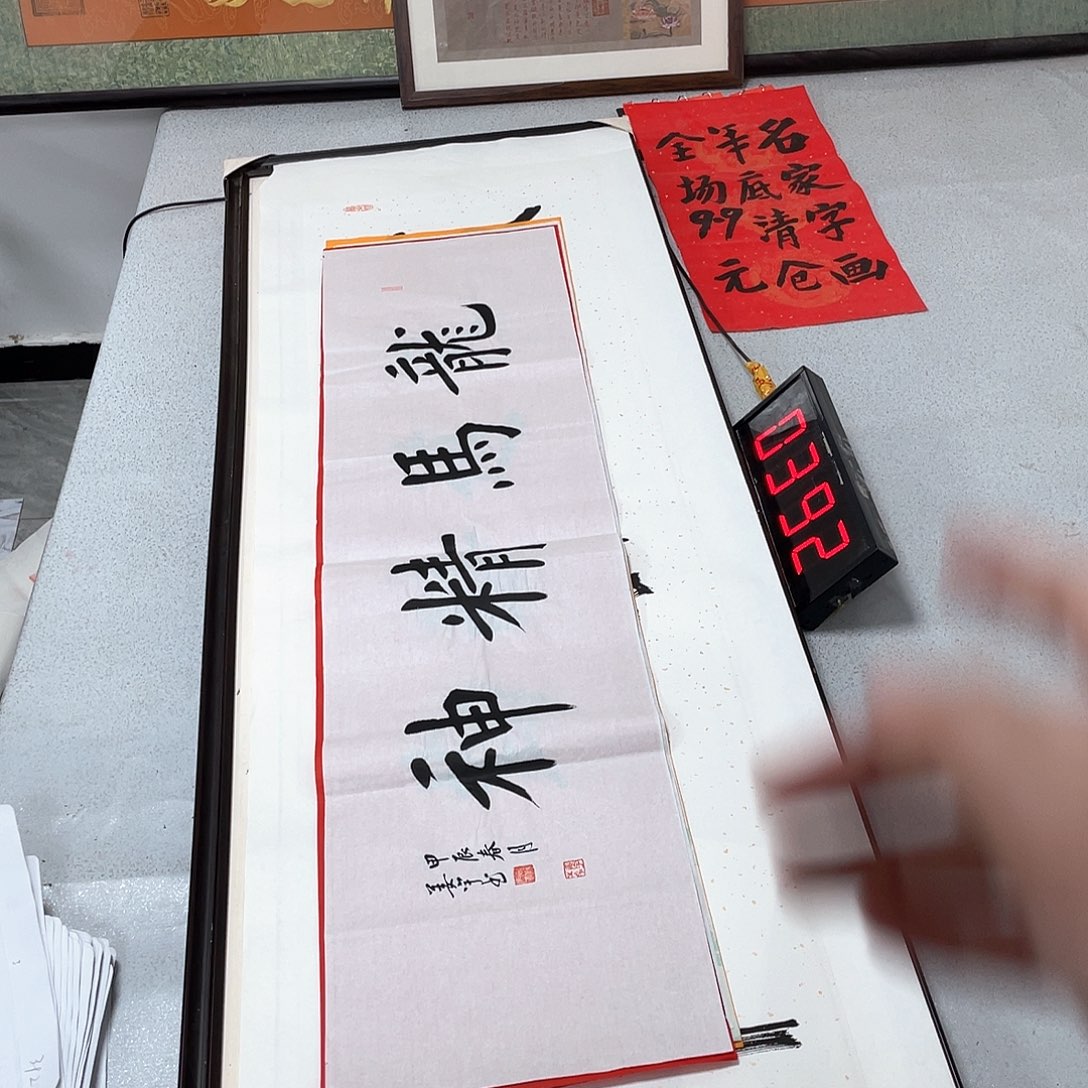 名家字画
年底清仓
全场99元
龍馬精神
甲辰春月
0392